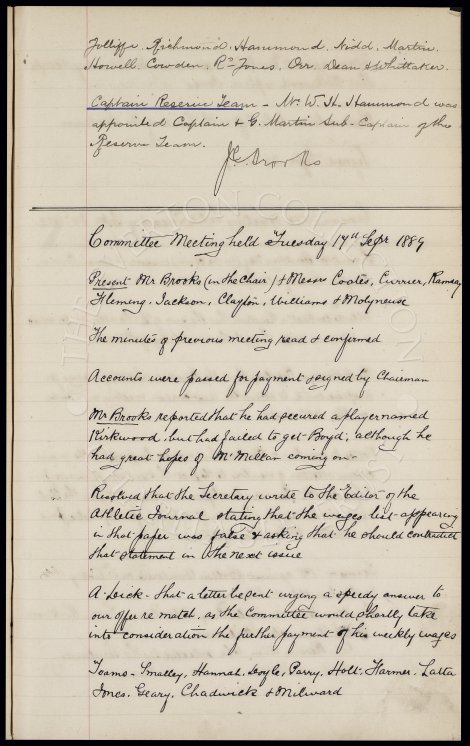 Jolliffe. Richmond. Hammond. Nidd. Martin.
Howell. Cowden. Rs Jones. Orr. Dean & Whittaker.
Captain Reserve Team - Mr. W. H. Hammond was
appointed Captain & G. Martin Sub-Captain of the
Reserve Team.
Brooks
Committee Meeting held Tuesday 17th Sepr 1889
Present Mr Brooks (in the Chair) & Messrs Coates, Currier, Ramsay
Fleming, Jackson, Clayton, Williams & Molyneux
The minutes of previous meeting read & confirmed
Accounts were passed for payment & signed by Chairman
Mr Brooks reported that he had secured a player named
Kirkwood, but had failed to get Boyd, although he
had great hopes of McMillan coming on
Resolved that the Secretary write to the Editor of the
Athletic Journal stating that the wages list appearing
in that paper was false & asking that he should contradict
that statement in the next issue
A Dick - that a letter be sent urging a speedy answer to
our offer re match, as the Committee would shortly take
into consideration the further payment of his weekly wages
Teams - Smalley, Hannah, Doyle, Parry, Holt, Farmer, Latta
Jones, Geary, Chadwick & Milward
THE EVERTON COLLECTION